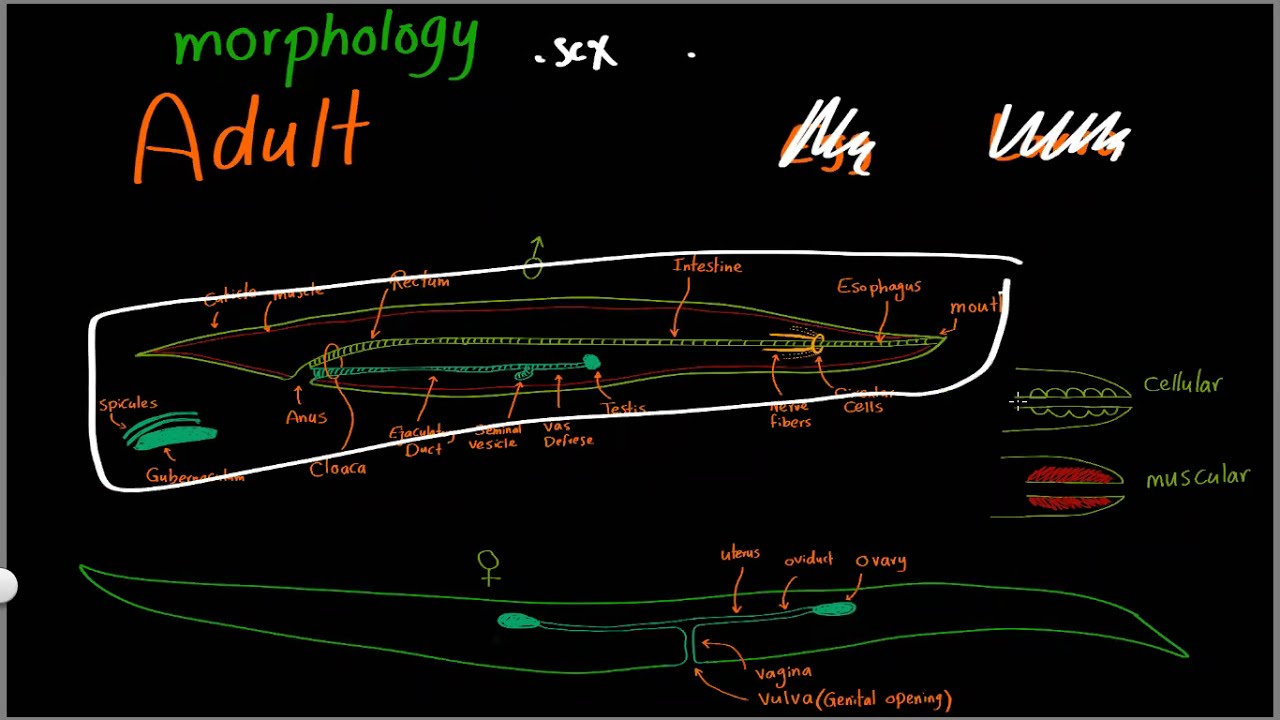 morphology
.sex .
Adult
Egg
Cuticle
muscle
Rectum
Intestine
Esophagus
mouth
Spicules
Gubernaculum
Anus
Cloaca
Ejaculatory
Duct
Seminal
vesicle
Vas
Defrese
Testis
Nerve
fibers
Circular
Cells
cellular
muscular
uterus
oviduct
Ovary
Vagina
Vulva (Genital opening)